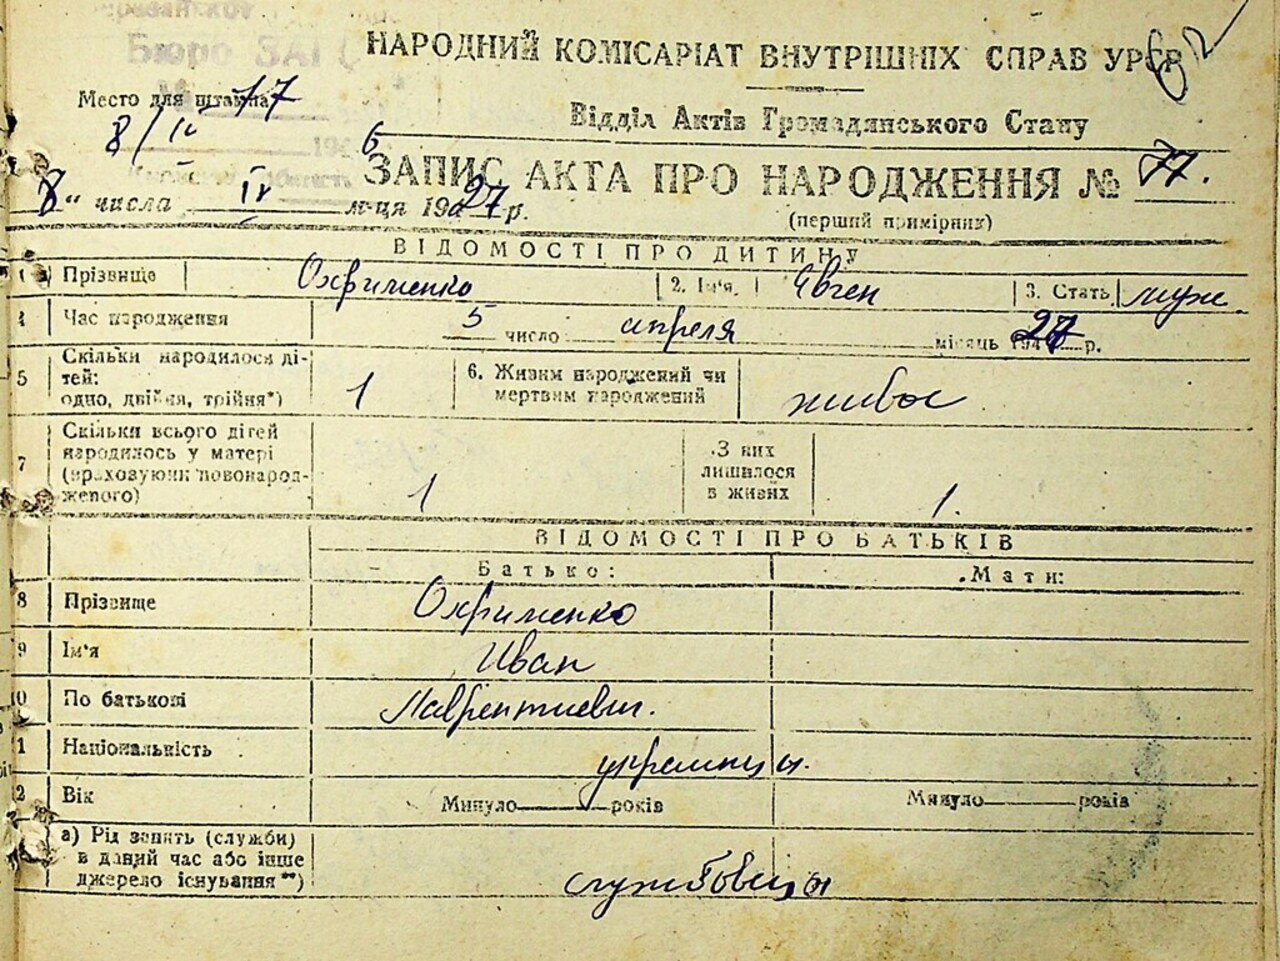 Бюро ЗАГС
НАРОДНИЙ КОМІСАРІАТ ВНУТРІШНІХ СПРАВ УРСР
62
Место для штампа 77
Відділ Актів Громадянського Стану
8/IV 194
6
ЗАПИС АКТА ПРО НАРОДЖЕННЯ № 77.
8 " числа IV м-ця 1927 р.
(перший примірник)
ВІДОМОСТІ ПРО ДИТИНУ
1 Прізвище Охрименко 2. Ім'я. Євген 3. Стать муж.
4 Час народження 5 число апреля місяць 1927 р.
5 Скільки народилося ді-
тей:
одно, двійня, трійня*) 1
6. Живим народжений чи
мертвим народжений живое
7 Скільки всього дітей
народилось у матері
(враховуючи новонарод-
женого) 1
З них
лишилося
в живих 1.
ВІДОМОСТІ ПРО БАТЬКІВ
Батько: Мати:
8 Прізвище Охрименко
9 Ім'я Иван
10 По батькові Лаврентиевич.
1 Національність украинцы.
2 Вік Минуло років Минуло років
а) Рід занять (служби)
в даний час або інше
джерело існування**) службовци